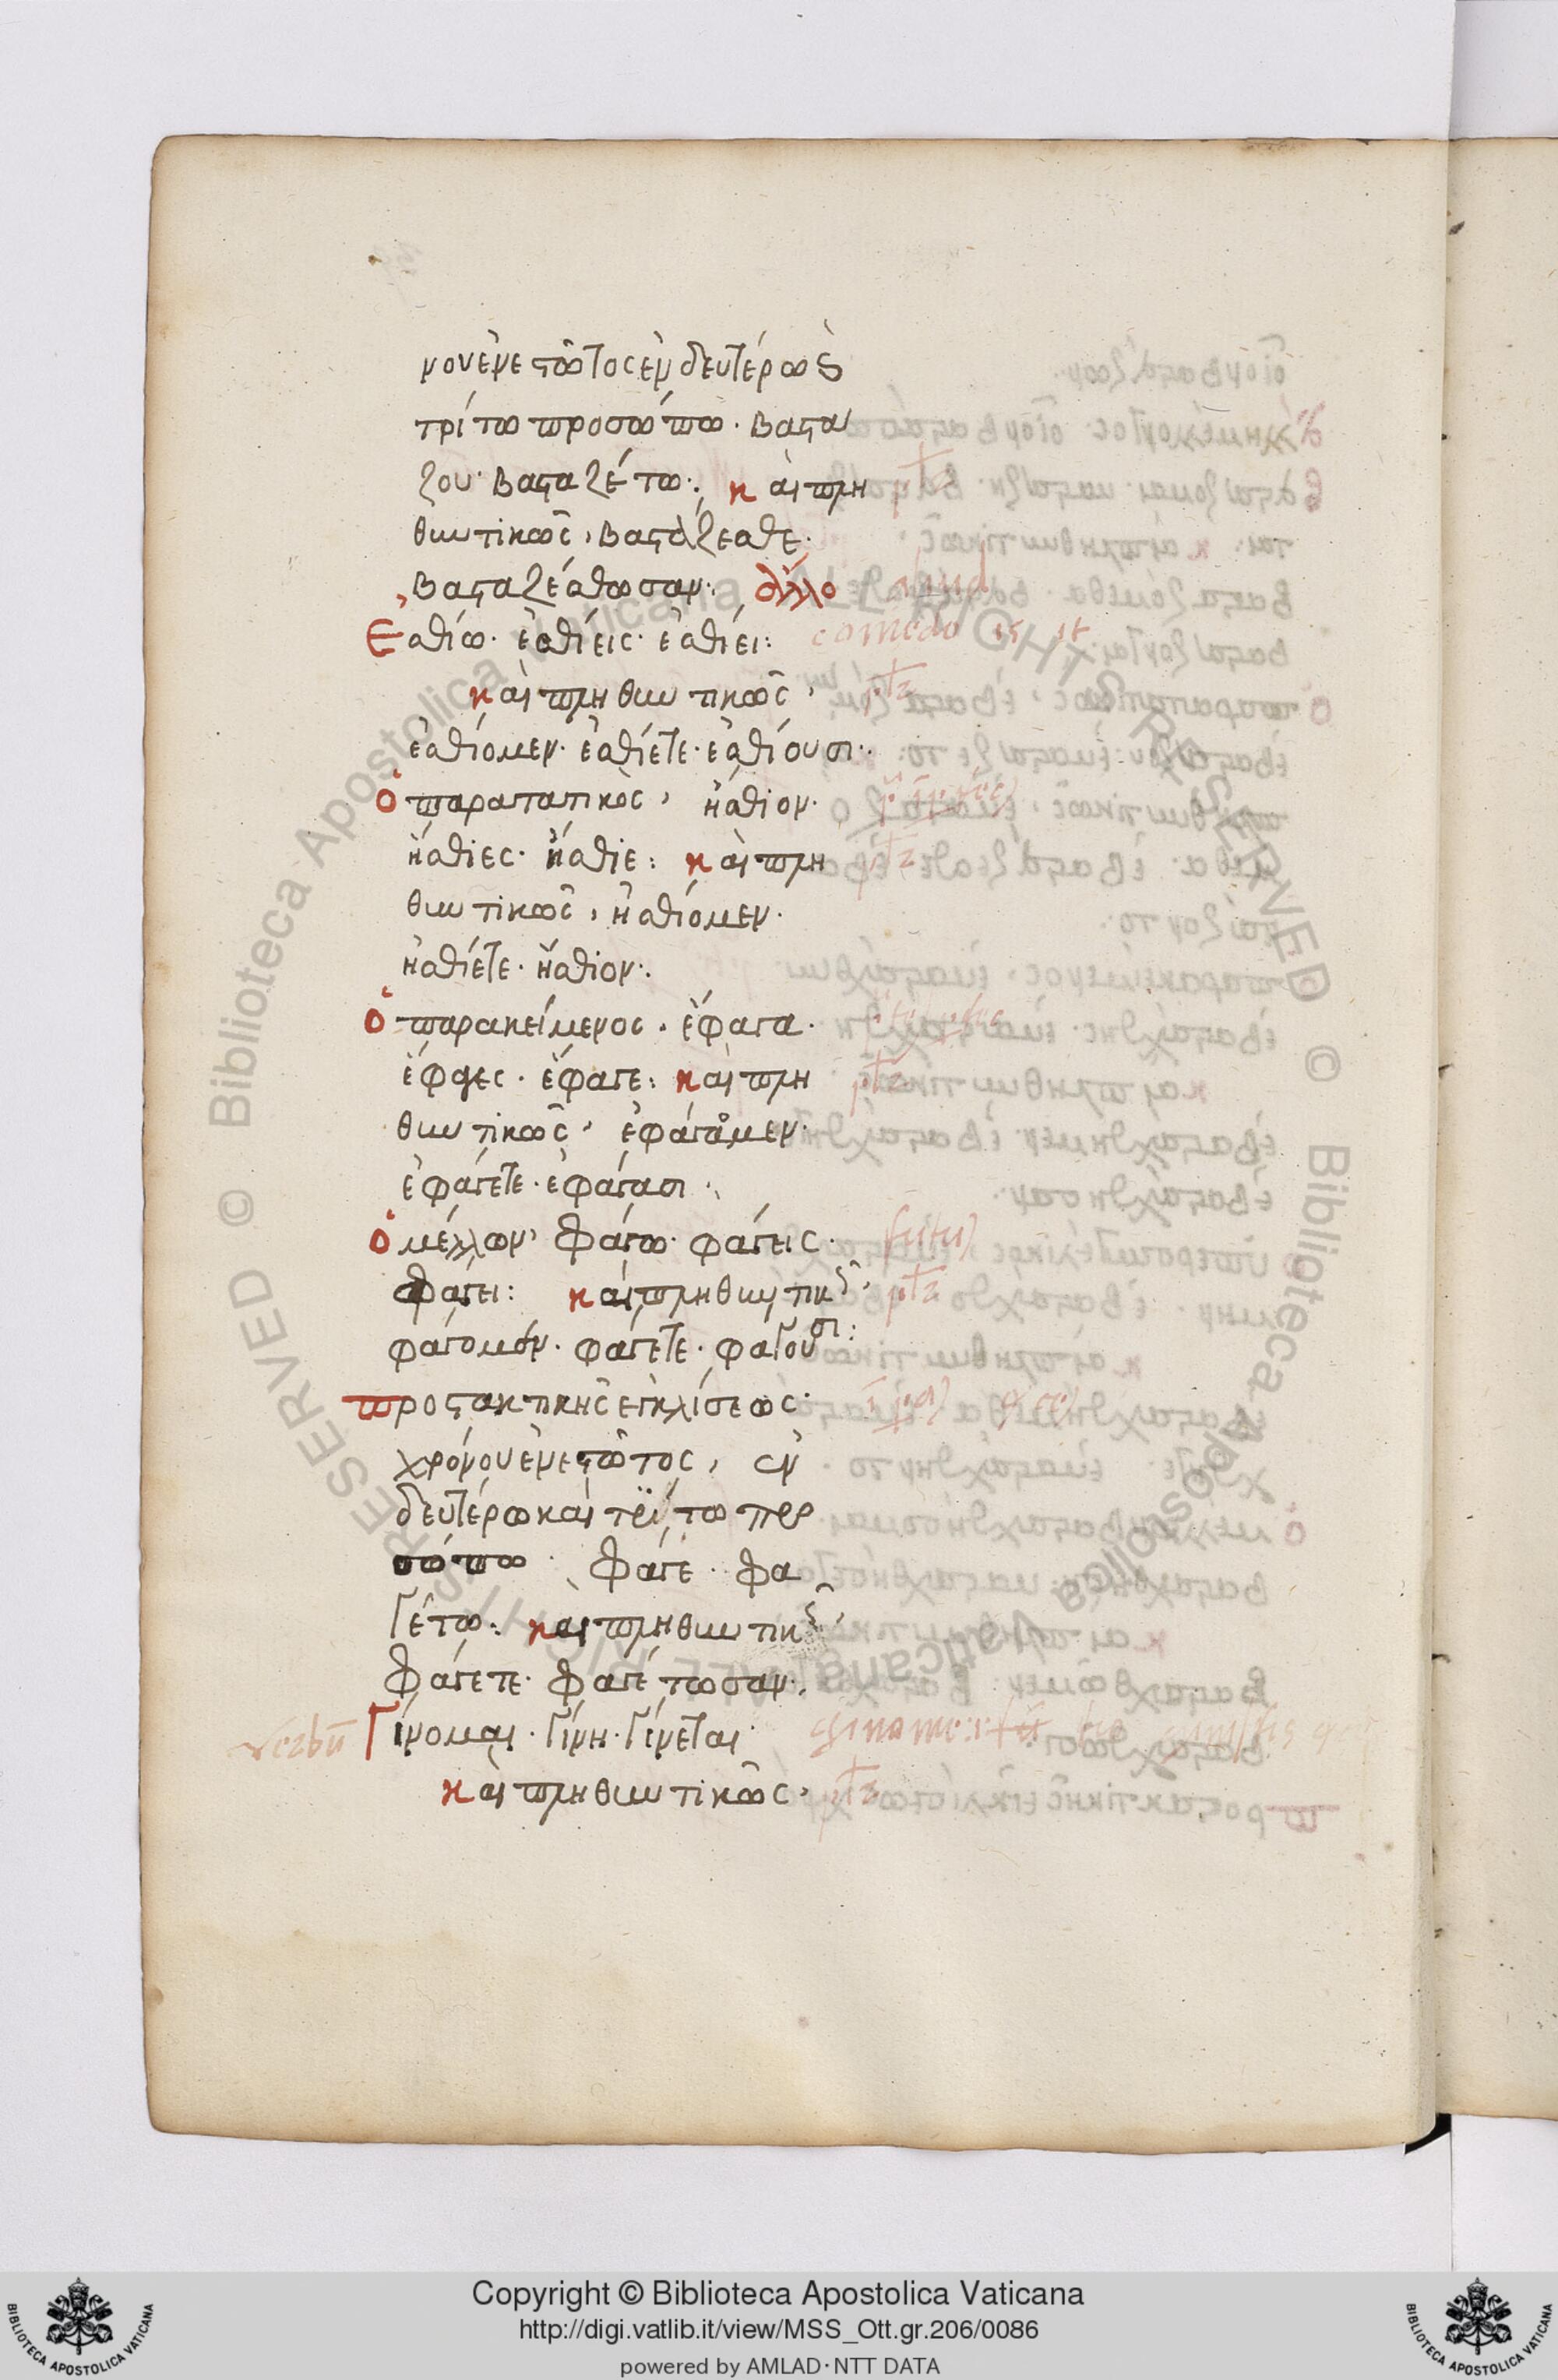 νονενεστῶτος ἐν δευτέρω ϗ
τρίτω προσώπω· βαστά
ζου· βασταζέτω: καὶ πλη
θυντικῶς, βαστάζεσθε·
βασταζέσθωσαν: ἄλλο aliud
Ἐσθίω· ἐσθίεις· ἐσθίει: comedo is it
καὶ πληθυντικῶς,
ἐσθίομεν· ἐσθίετε· ἐσθίουσι:
Ὁ παρατατικὸς, ἤσθιον·
ἤσθιες· ἤσθιε: καὶ πλη
θυντικῶς, ἠσθίομεν·
ἠσθίετε· ἤσθιον:
Ὁ παρακείμενος, ἔφαγα·
ἔφαγες· ἔφαγε: καὶ πλη
θυντικῶς, ἐφάγαμεν·
ἐφάγετε· ἐφάγασι:
Ὁ μέλλων, φάγω· φάγεις·
φάγει: καὶ πληθυντικῶς,
φάγομεν· φάγετε· φάγουσι:
προστακτικῆς ἐγκλίσεως·
χρόνου ἐνεστῶτος, ἐν
δευτέρω καὶ τρίτω προ
σώπω· φάγε· φα
γέτω: καὶ πληθυντικῶς,
φάγετε· φαγέτωσαν:
verbū Γίνομαι· γίνη· γίνεται·
καὶ πληθυντικῶς,
Copyright © Biblioteca Apostolica Vaticana
http://digi.vatlib.it/view/MSS_Ott.gr.206/0086
powered by AMLAD·NTT DATA